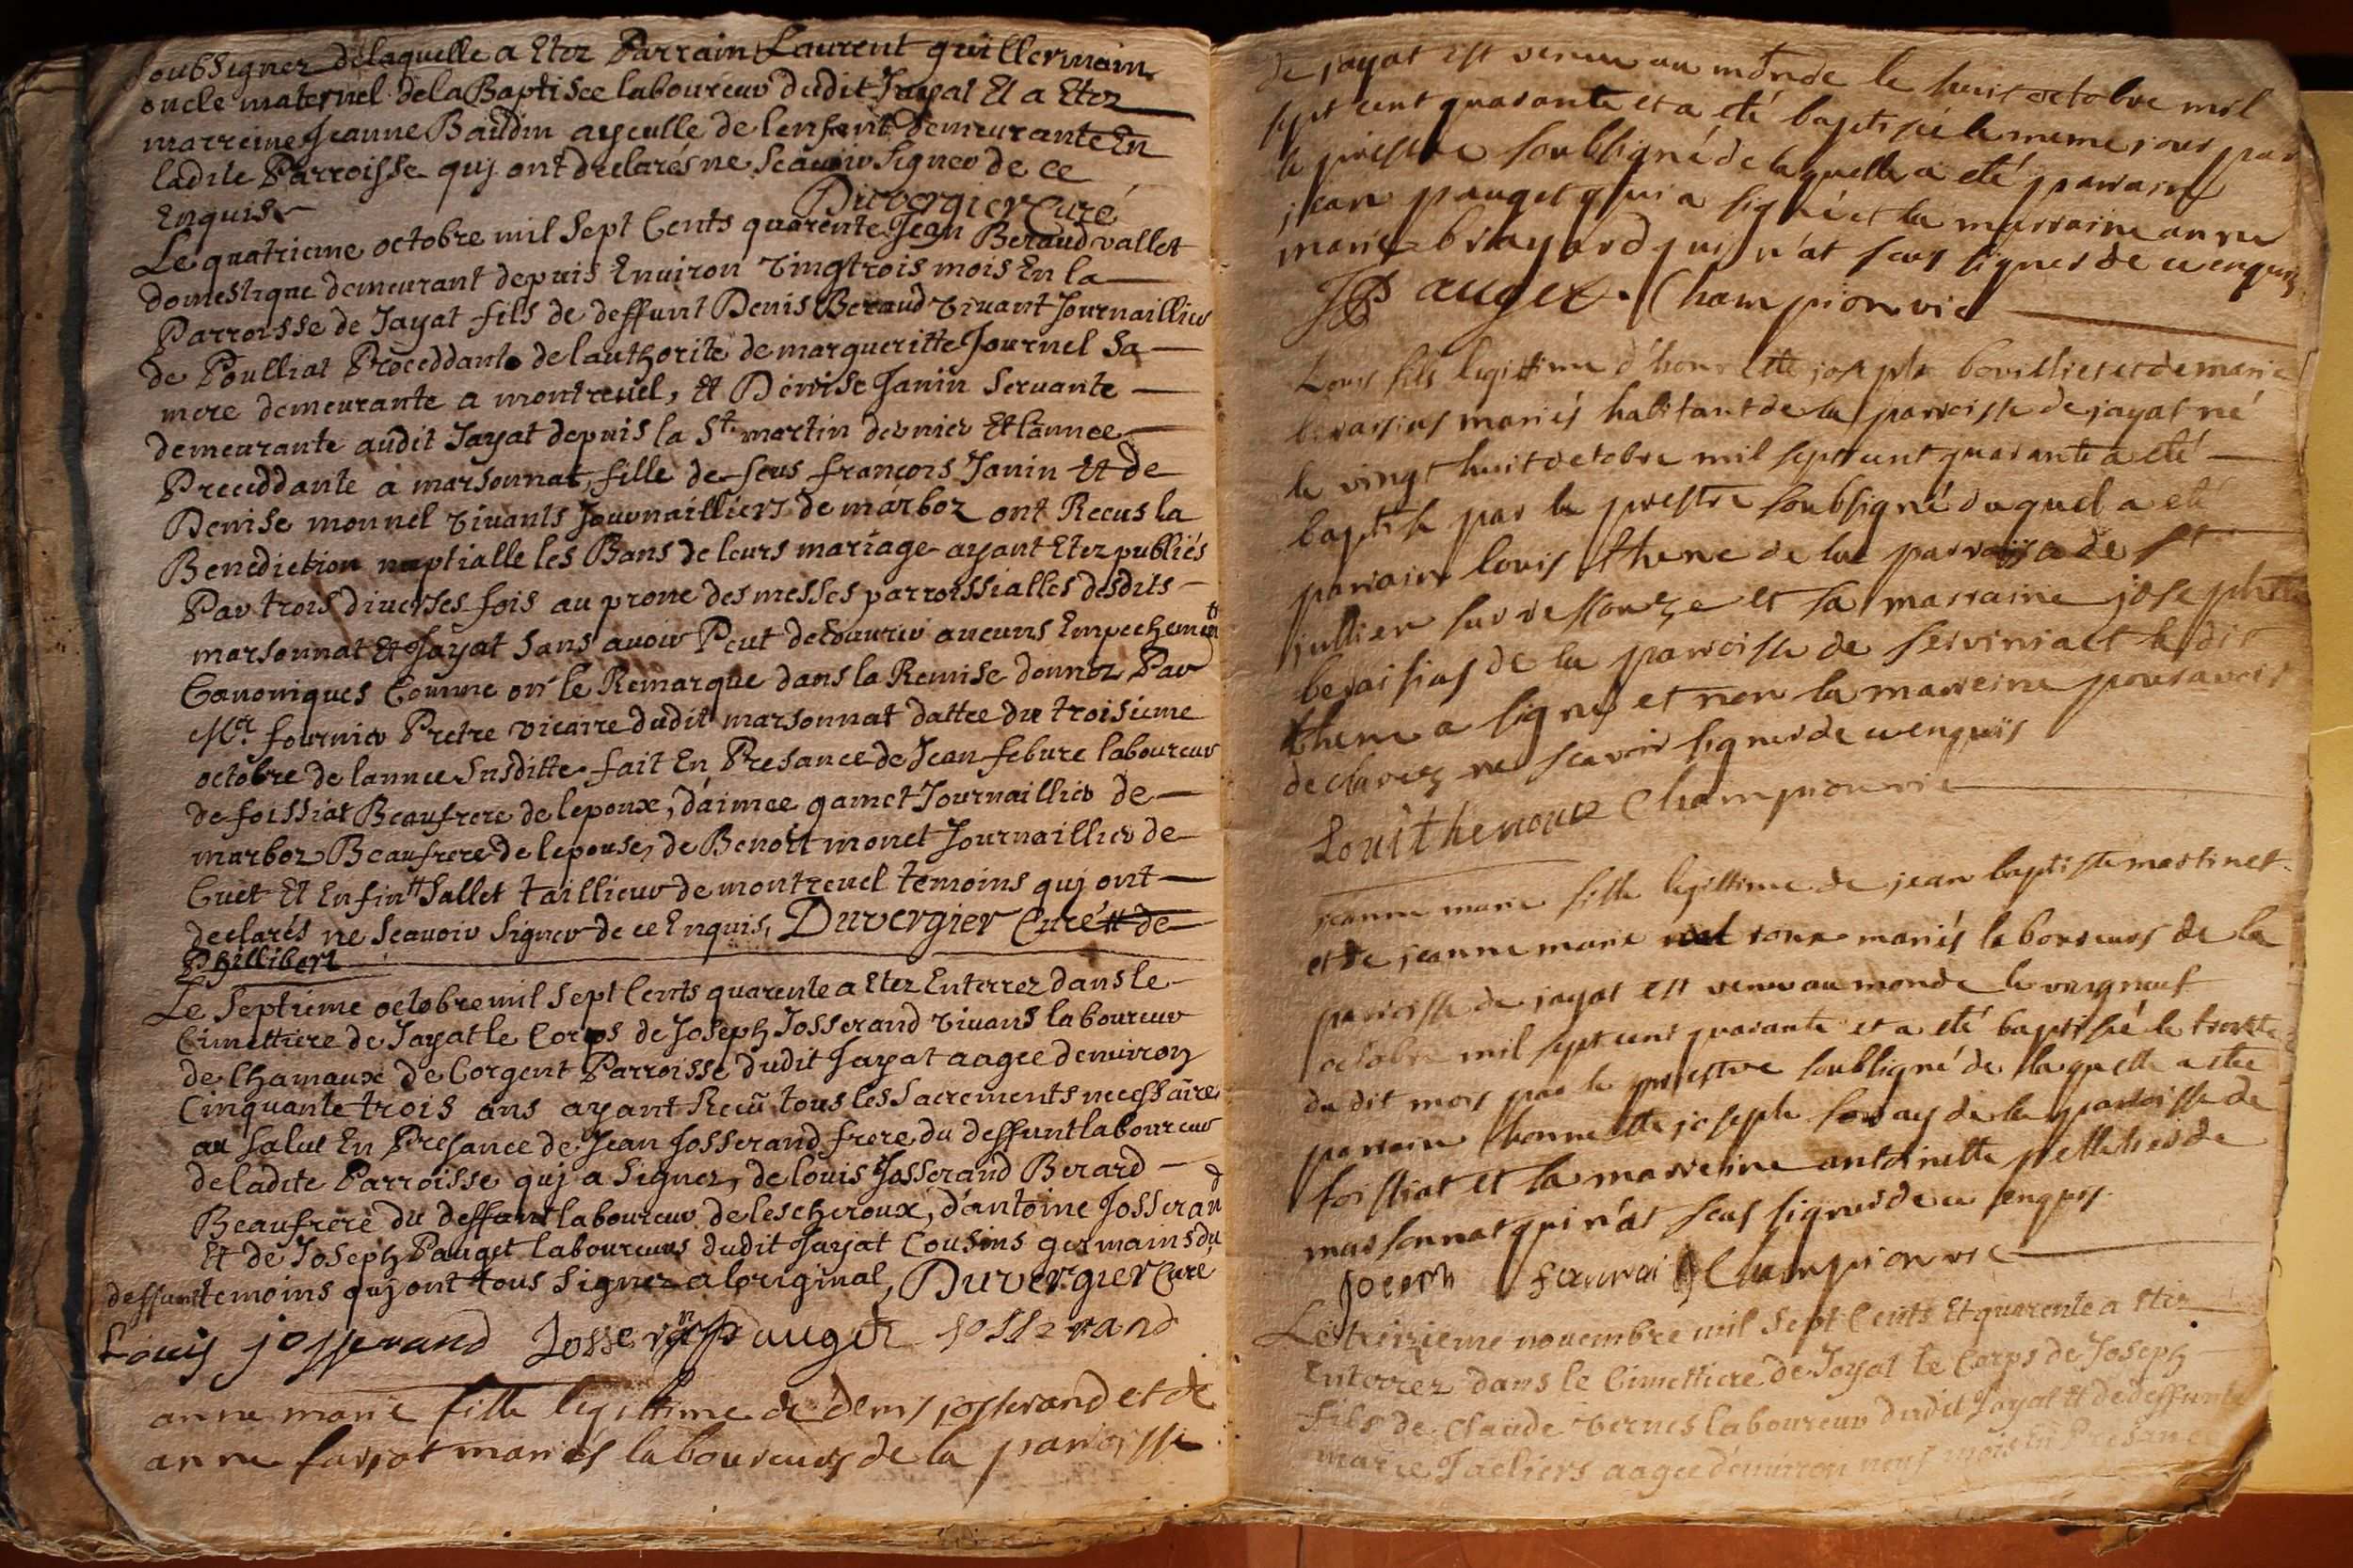 soubsignez delaquelle a Etez Parrain Laurent guillermain
oncle maternel dela Baptisee laboureur dudit Jayat Et a Etez
marreine Jeanne Baudin ayeulle de lenfant demeurante En
ladite Parroisse quj ont declarés ne Scauoir Signer de ce
Enquis Duvergier Curé
Le quatrieme octobre mil Sept Cents quarente Jean Beraud vallet
domestique demeurant depuis Enuiron vingtrois mois En la
Parroisse de Jayat fils de deffunt Denis Beraud viuant Journaillier
de Poulliat Proceddant de lauthorite de margueritte Journel Sa
mere demeurante a montreuel, Et Denise Janin Seruante
demeurante audit Jayat depuis la St. martin dernier Et lannee
Preceddante a marsonnat, fille de feus françois Janin Et de
Denise monnel viuants Journailliers de marboz ont Recus la
Benediction nuptialle les Bans de leurs mariage ayant Etez publiés
Par trois diuerses fois au prone des messes parroissialles desdits
marsonnat Et Jayat Sans auoir Peut decouurir aucuns Empechements
Canoniques Comme on le Remarque dans la Remise donnez Par
Mr. fournier Pretre vicaire dudit marsonnat dattee du troisieme
octobre de lannee Susditte fait En Presance de Jean febure laboureur
de foissiat Beaufrere de lepoux, d'aimee gamet Journaillier de
marboz Beaufrere de lepouse, de Benoit monet Journaillier de
Cuet Et Enfin Sallet taillieur de montreuel temoins quj ont
declarés ne Scauoir Signer de ce Enquis, Duvergier Curé de
Phillibert
Le Septieme octobre mil Sept Cents quarente a Etez Enterrez dans le
Cimettiere de Jayat le Corps de Joseph Josserand viuans laboureur
de Chamaux de Corgent Parroisse dudit Jayat aagee denuiron
Cinquante trois ans ayant Recu tous les Sacrements necessaire
au Salut En Presance de Jean Josserand frere du deffunt laboureur
de ladite Parroisse quj a Signez, de louis Josserand Berard
Beaufrere du deffunt laboureur de lescheroux, d'antoine Josserand
Et de Joseph Pauget laboureurs dudit Jayat Cousins germains du
deffunt temoins quj ont tous Signez a loriginal, Duvergier Cure
Louis josserand Josserand Pauget josserand
anne marie fille legittime de denis josserand et de
anne mariés laboureurs de la parroisse
de jayat est venu au monde le huit octobre mil
sept cent quarante et a eté baptisé le meme jour par
le prestre soubsigné de laquelle a eté parrain
jean pauget qui a signé et la marraine anne
marie brayard qui n'at seus signer de ce enquis
JPauget. Champion vic
Louis fils legittime d'honnette joseph bouillier et de marie
mariés habitant de la parroisse de jayat né
le vingt huit octobre mil sept cent quarante a eté
baptise par le prestre soubsigné duquel a eté
parrain louis thene de la parroisse de St
jullien sur ressouze et la marraine josephte
de la parroisse de servinia et le dit
thene a signe et non la marreine pour avoir
declarez ne scavoir signer de ce enquis
Champion vic
jeanne marie fille legittime de jean baptiste martinet
et de jeanne marie mariés laboureurs de la
parroisse de jayat est venu au monde le vingneuf
octobre mil sept cent quarante et a eté baptisé le trente
du dit mois par le prestre soubsigné de laquelle a etee
parrain honnette joseph de la parroisse de
foissiat et la marreine antoinette de
marsonnat qui n'at seus signer de ce enquis.
Joseph Champion vic
Le treizieme nouembre mil Sept Cents Et quarente a Etez
Enterrez dans le Cimettiere de Jayat le Corps de Joseph
fils de Claude vernes laboureur dudit Jayat Et de deffunte
marie aagee denuiron neuf mois En Presance